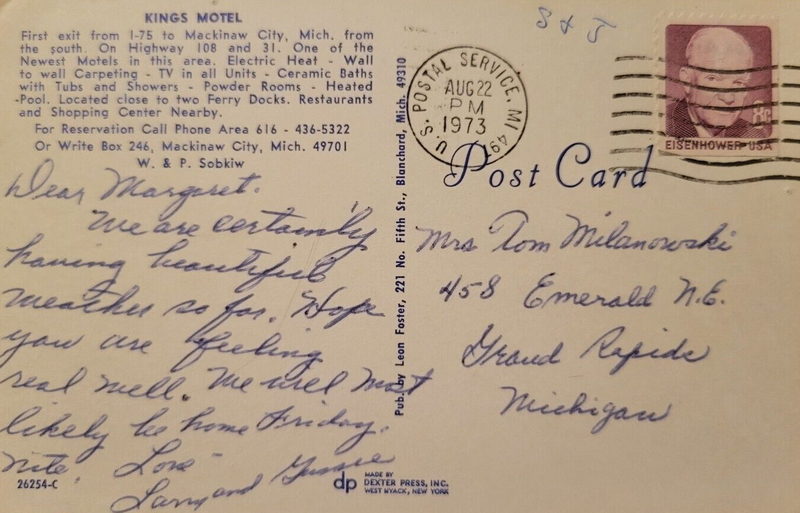 KINGS MOTEL
First exit from I-75 to Mackinaw City, Mich. from
the south. On Highway 108 and 31. One of the
Newest Motels in this area. Electric Heat - Wall
to wall Carpeting - TV in all Units - Ceramic Baths
with Tubs and Showers - Powder Rooms - Heated
-Pool. Located close to two Ferry Docks. Restaurants
and Shopping Center Nearby.
For Reservation Call Phone Area 616 - 436-5322
Or Write Box 246, Mackinaw City, Mich. 49701
W. & P. Sobkiw
Dear Margaret.
We are certainly
having beautiful
weather so far. Hope
you are feeling
real well. We will most
likely be home Friday.
nite. Love
Larry and Gussie
26254-C
Pub. by Leon Foster, 221 No. Fifth St., Blanchard, Mich. 49310
dp MADE BY
DEXTER PRESS, INC.
WEST NYACK, NEW YORK
S & J
U.S. POSTAL SERVICE, MI
AUG 22
PM
1973
8¢
EISENHOWER·USA
Post Card
Mrs Tom Milanowski
458 Emerald N.E.
Grand Rapids
Michigan